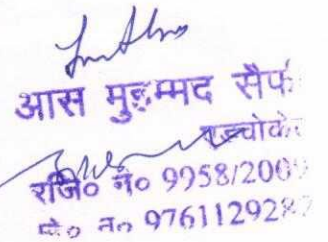 आस मुहम्मद सैफ
एडवोके
रजि० नं० 9958/200
मो० न० 97611292